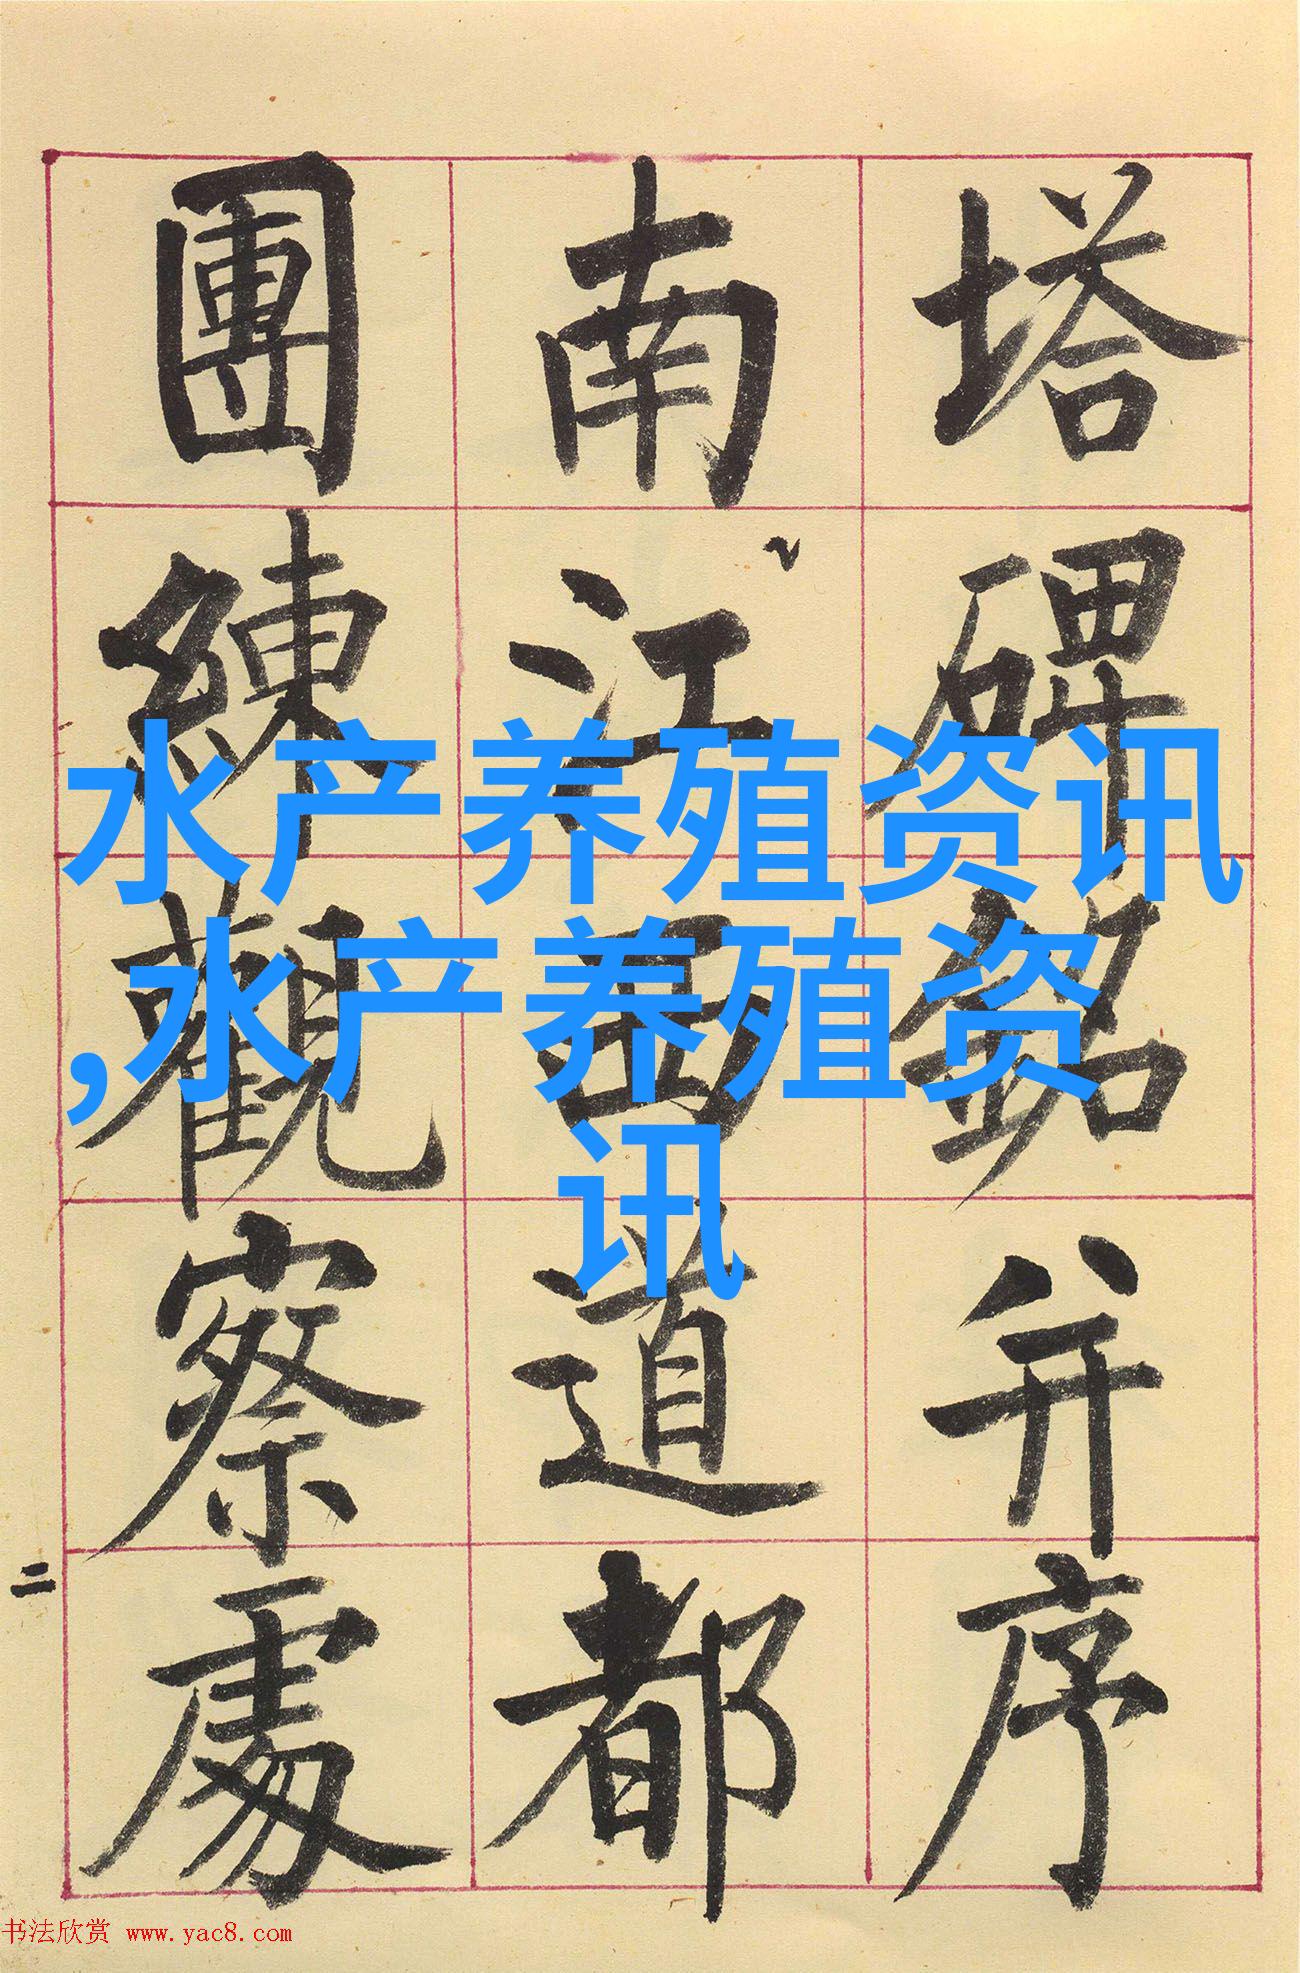 塔碑銘并序
南江西道都
團練觀察處
二
水产养殖资讯
,水产养殖资
讯
书法欣赏 www.yac8.com